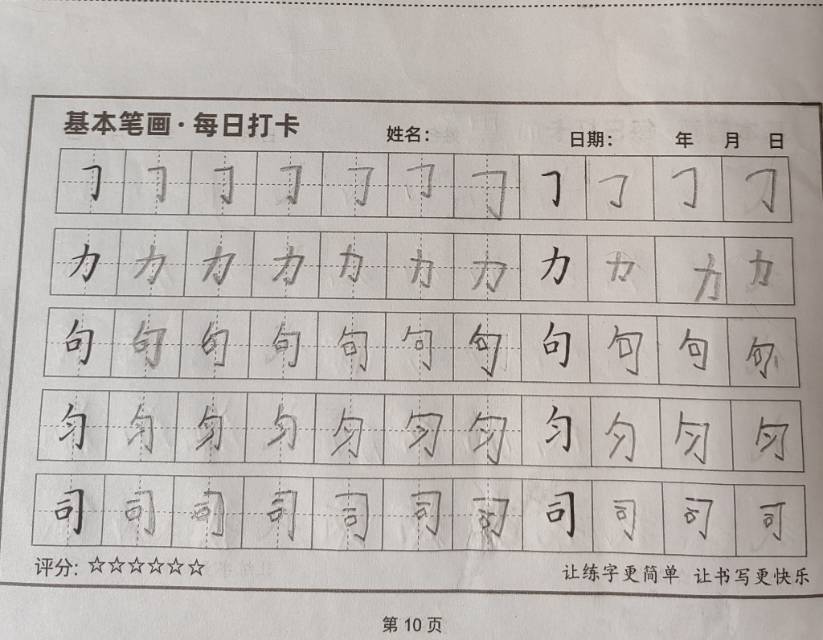 基本笔画·每日打卡 姓名: 日期: 年 月 日
㇆ ㇆ ㇆ ㇆ ㇆ ㇆ ㇆ ㇆ ㇆ ㇆ ㇆
力 力 力 力 力 力 力 力 力 力 力
句 句 句 句 句 句 句 句 句 句 句
匀 匀 匀 匀 匀 匀 匀 匀 匀 匀 匀
司 司 司 司 司 司 司 司 司 司 司
评分: ☆☆☆☆☆☆ 让练字更简单 让书写更快乐
第 10 页